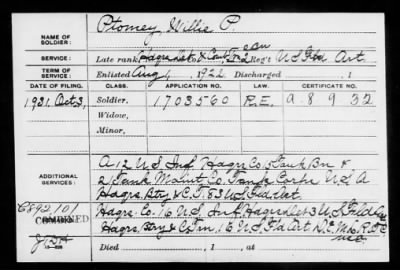 NAME OF SOLDIER: Ptomey, Willie P.
SERVICE: Late rank, Hdqrs. Det & Com Tn 2 Reg't U S Fld Art.
TERM OF SERVICE: Enlisted Aug 4, 1922 Discharged , 1
DATE OF FILING. CLASS. APPLICATION NO. LAW. CERTIFICATE NO.
1931. Oct 3, Soldier. 1703560 R.E. A 8 9 32
Widow,
Minor,
ADDITIONAL SERVICES:
A 12 U S Inf Hdqrs Co. 15 Tank Bn &
2 Tank Maint Co. Tank Corps U S A
Hdqrs. Btry & C. T. 83 U S Fld Art.
Hdqrs. Co. 16 U S Inf Hdqrs Det 3 U S Field
Hdqrs. Btry & Com Tn. 16 U S Fld Art
C892101
COMBINED
Died , 1 , at